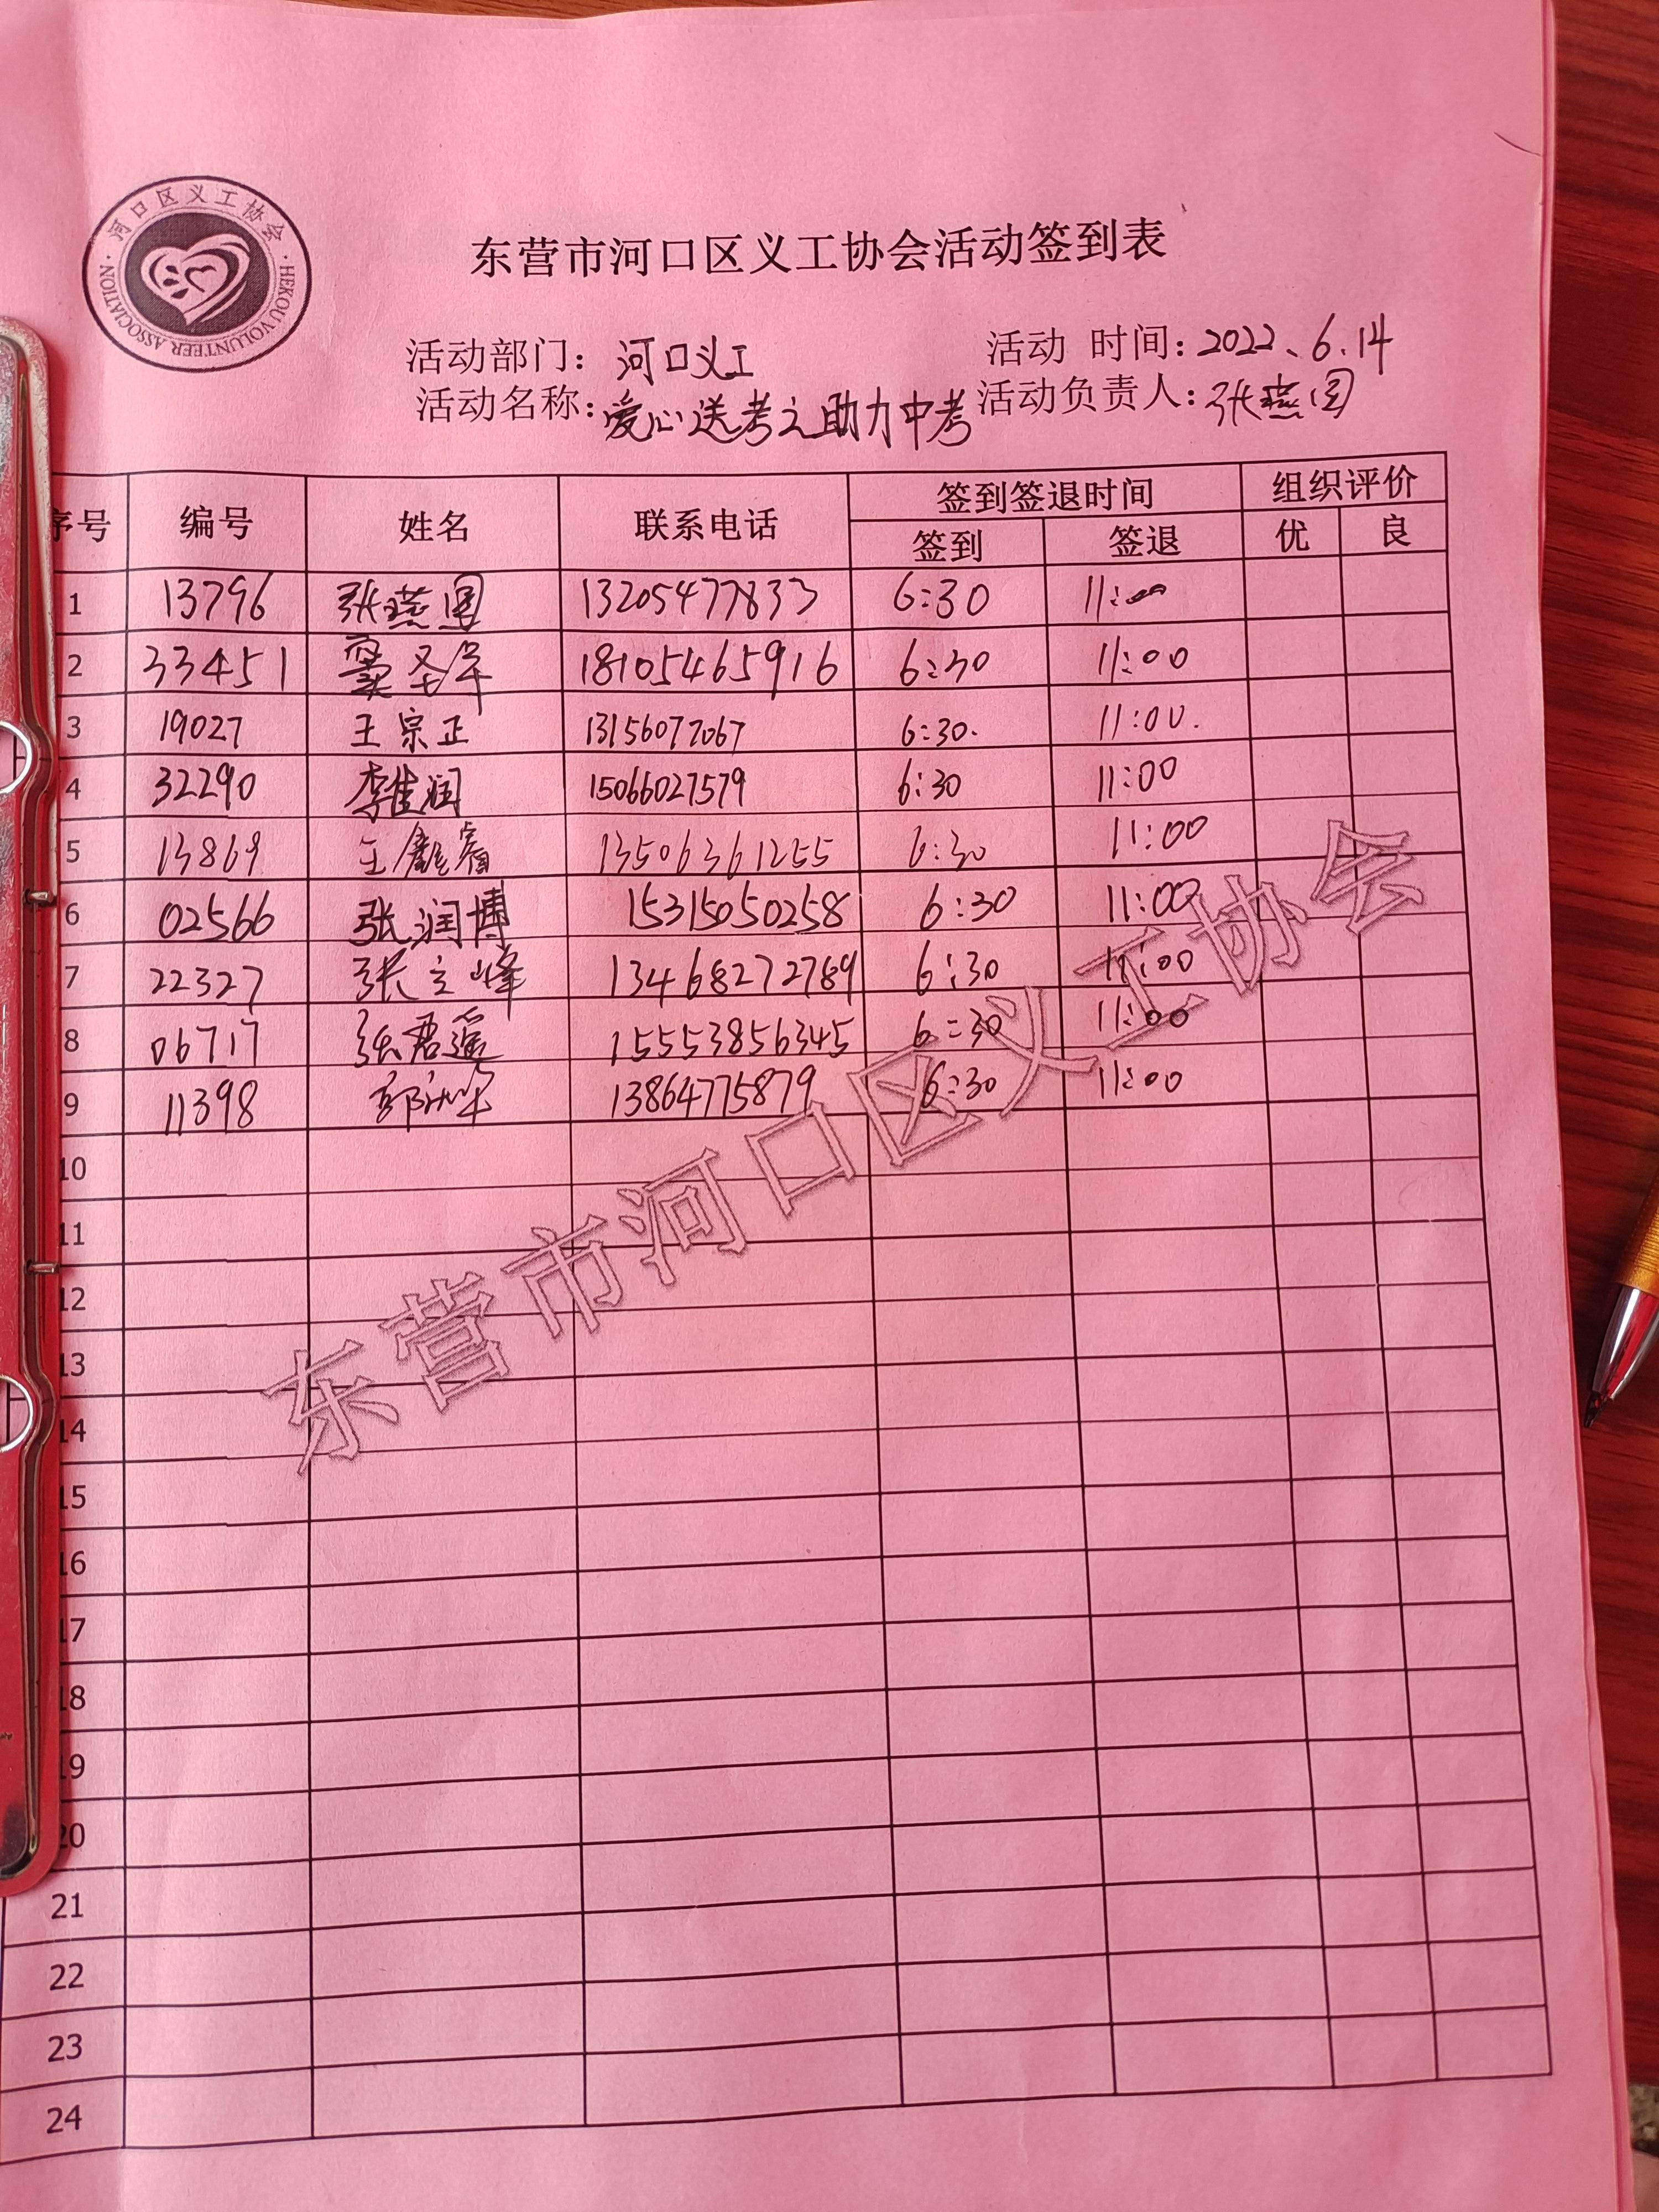 河口区义工协会
HEKOU VOLUNTEER ASSOCIATION
东营市河口区义工协会活动签到表
活动部门：河口义工 活动 时间：2022、6.14
活动名称：爱心送考之助力中考 活动负责人：张燕
序号 编号 姓名 联系电话 签到签退时间 组织评价
签到 签退 优 良
1 13796 张燕 13205477833 6:30 11:00
2 33451 窦圣军 18105465916 6:30 11:00
3 19027 王宗正 13156077067 6:30. 11:00.
4 32290 李佳润 15066027579 6:30 11:00
5 13869 王 睿 13506361255 6:30 11:00
6 02566 张润博 15315050258 6:30 11:00
7 22327 张立峰 13468272789 6:30 11:00
8 06717 张君遥 15553856345 6:30 11:00
9 11398 郭 13864775879 6:30 11:00
10
11
12
13
14
15
16
17
18
19
20
21
22
23
24
东营市河口区义工协会